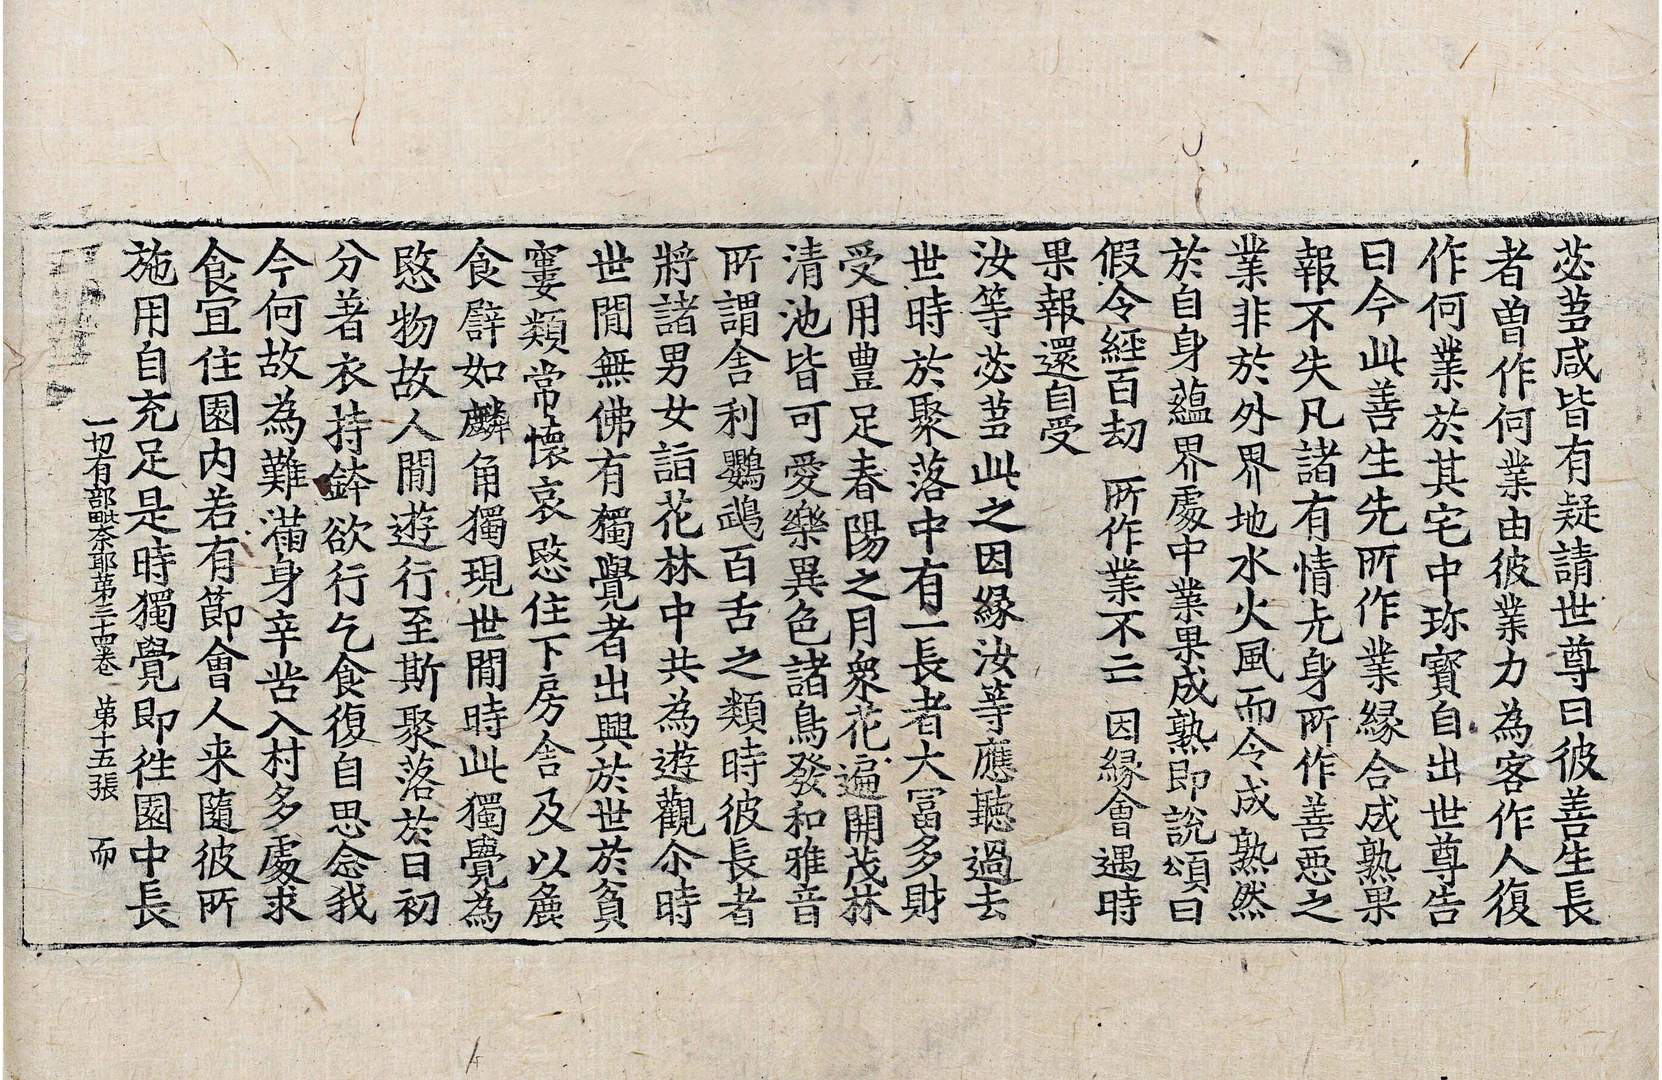 苾芻咸皆有疑請世尊曰彼善生長
者曽作何業由彼業力為客作人復
作何業於其宅中珎寶自出世尊告
曰今此善生先所作業縁合成熟果
報不失凡諸有情䒭身所作善惡之
業非於外界地水火風而令成熟然
於自身蘊界處中業果成熟即說頌曰
假令經百劫 所作業不亡 因縁會遇時
果報還自受
汝等苾芻此之因縁汝等應聽過去
世時於聚落中有一長者大冨多財
受用豊足春陽之月衆花遍開茂林
清池皆可愛樂異色諸鳥發和雅音
所謂舎利鸚鵡百舌之類時彼長者
將諸男女詣花林中共為遊觀尒時
世間無佛有獨覺者出興於世於貧
窶類常懷哀愍住下房舎及以麁
食譬如麟角獨現世間時此獨覺為
愍物故人間遊行至斯聚落於日初
分著衣持鉢欲行乞食復自思念我
今何故為難滿身辛苦入村多處求
食宜住園内若有節會人来隨彼所
施用自充足是時獨覺即徃園中長
一切有部毗奈耶苐三十四卷 苐十五張 而